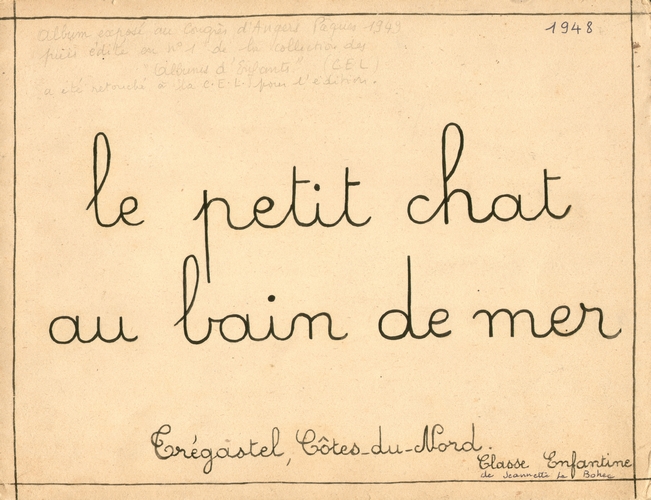 Album exposé au Congrès d'Angers Pâques 1949
puis édité en n°1 de la collection des
"Albums d'Enfants" (CEL)
a été retouché à la C.E.L. pour l'édition.
1948
le petit chat
au bain de mer
Trégastel, Côtes-du-Nord.
Classe Enfantine
de Jeannette Le Bohec